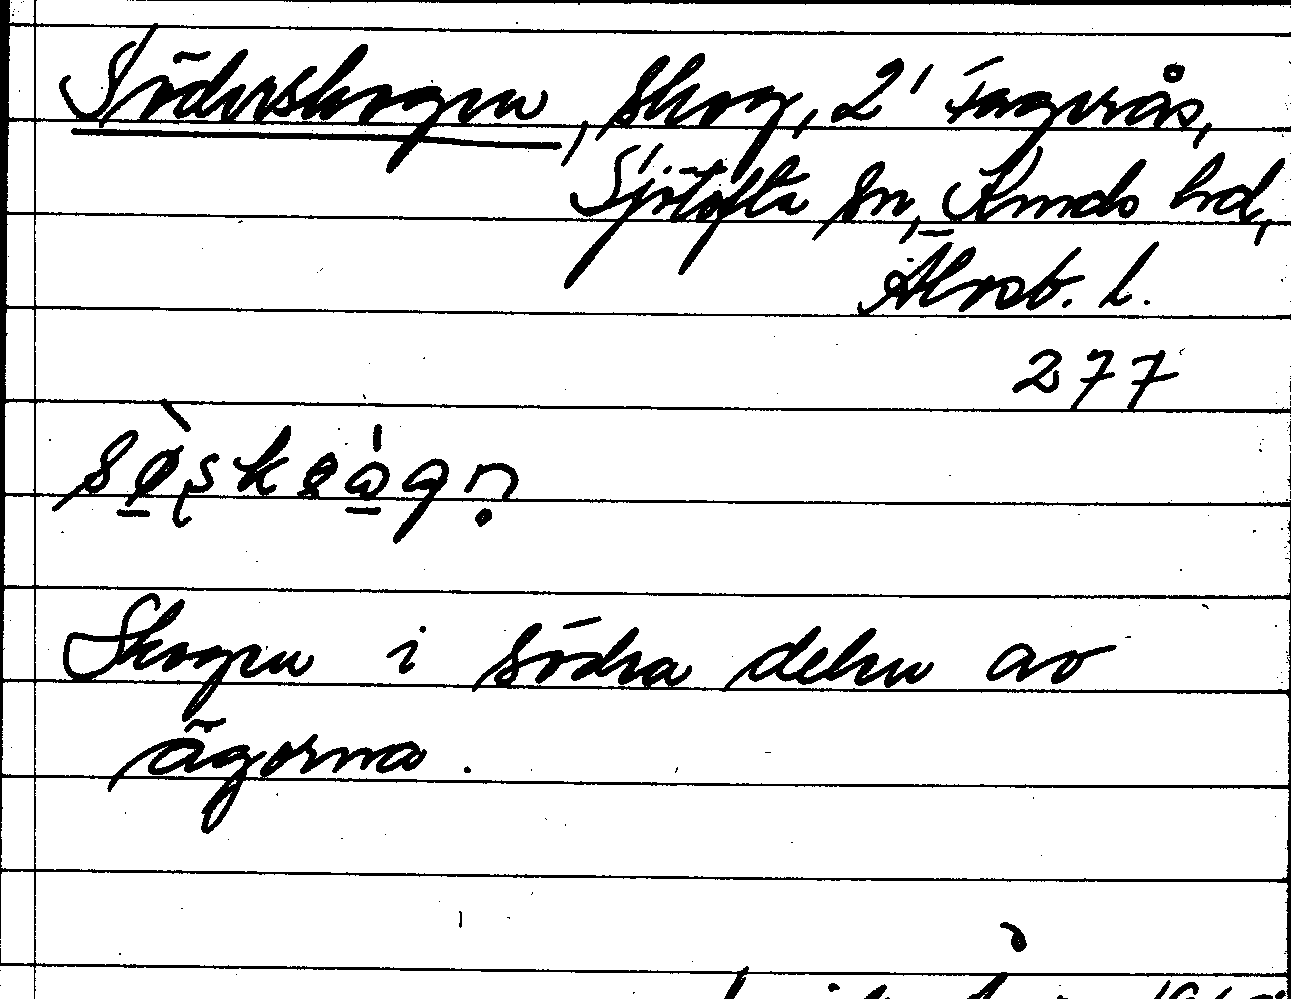 Söderskogen, skog, 2' Fagerås,
Sjötofta sn, Kinds hd,
Älvsb. l.
277
Skogen i södra delen av
ägorna.